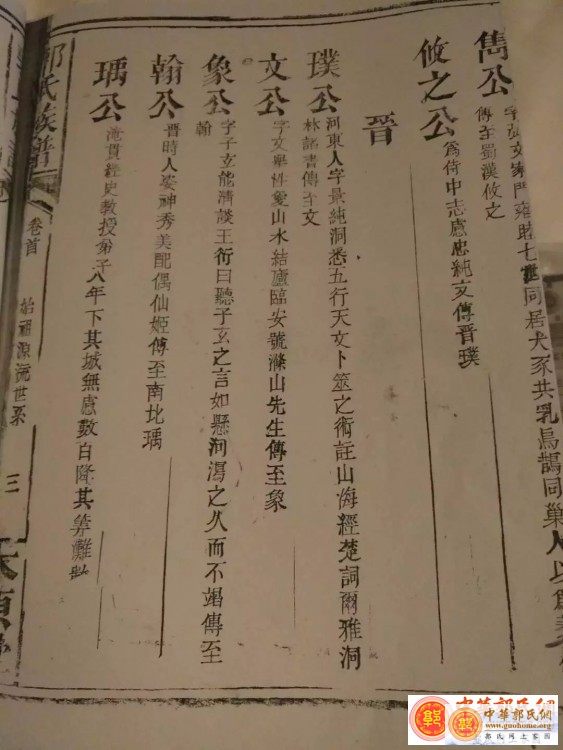 雋公
字弘文家門雍睦七世同居犬豕共乳烏鵲同巢人以爲
傳至蜀漢攸之
攸之公
爲侍中志慮忠純文傳晋璞
晋
璞公
河東人字景純洞悉五行天文卜筮之術註山海經楚詞爾雅洞
林諸書傳至文
文公
字文舉性愛山水結廬臨安號滌山先生傳至象
象公
字子玄能清談王衍曰聽子玄之言如懸河瀉之久而不竭傳至
翰
翰公
晋時人姿神秀美配偶仙姬傳至南北瑀
瑀公
淹貫經史教授弟子八年下其城無慮數百隆其筭難
郭氏族譜
卷首
始祖源流世系
三
中華郭氏網
www.guohome.org
郭氏網上家園